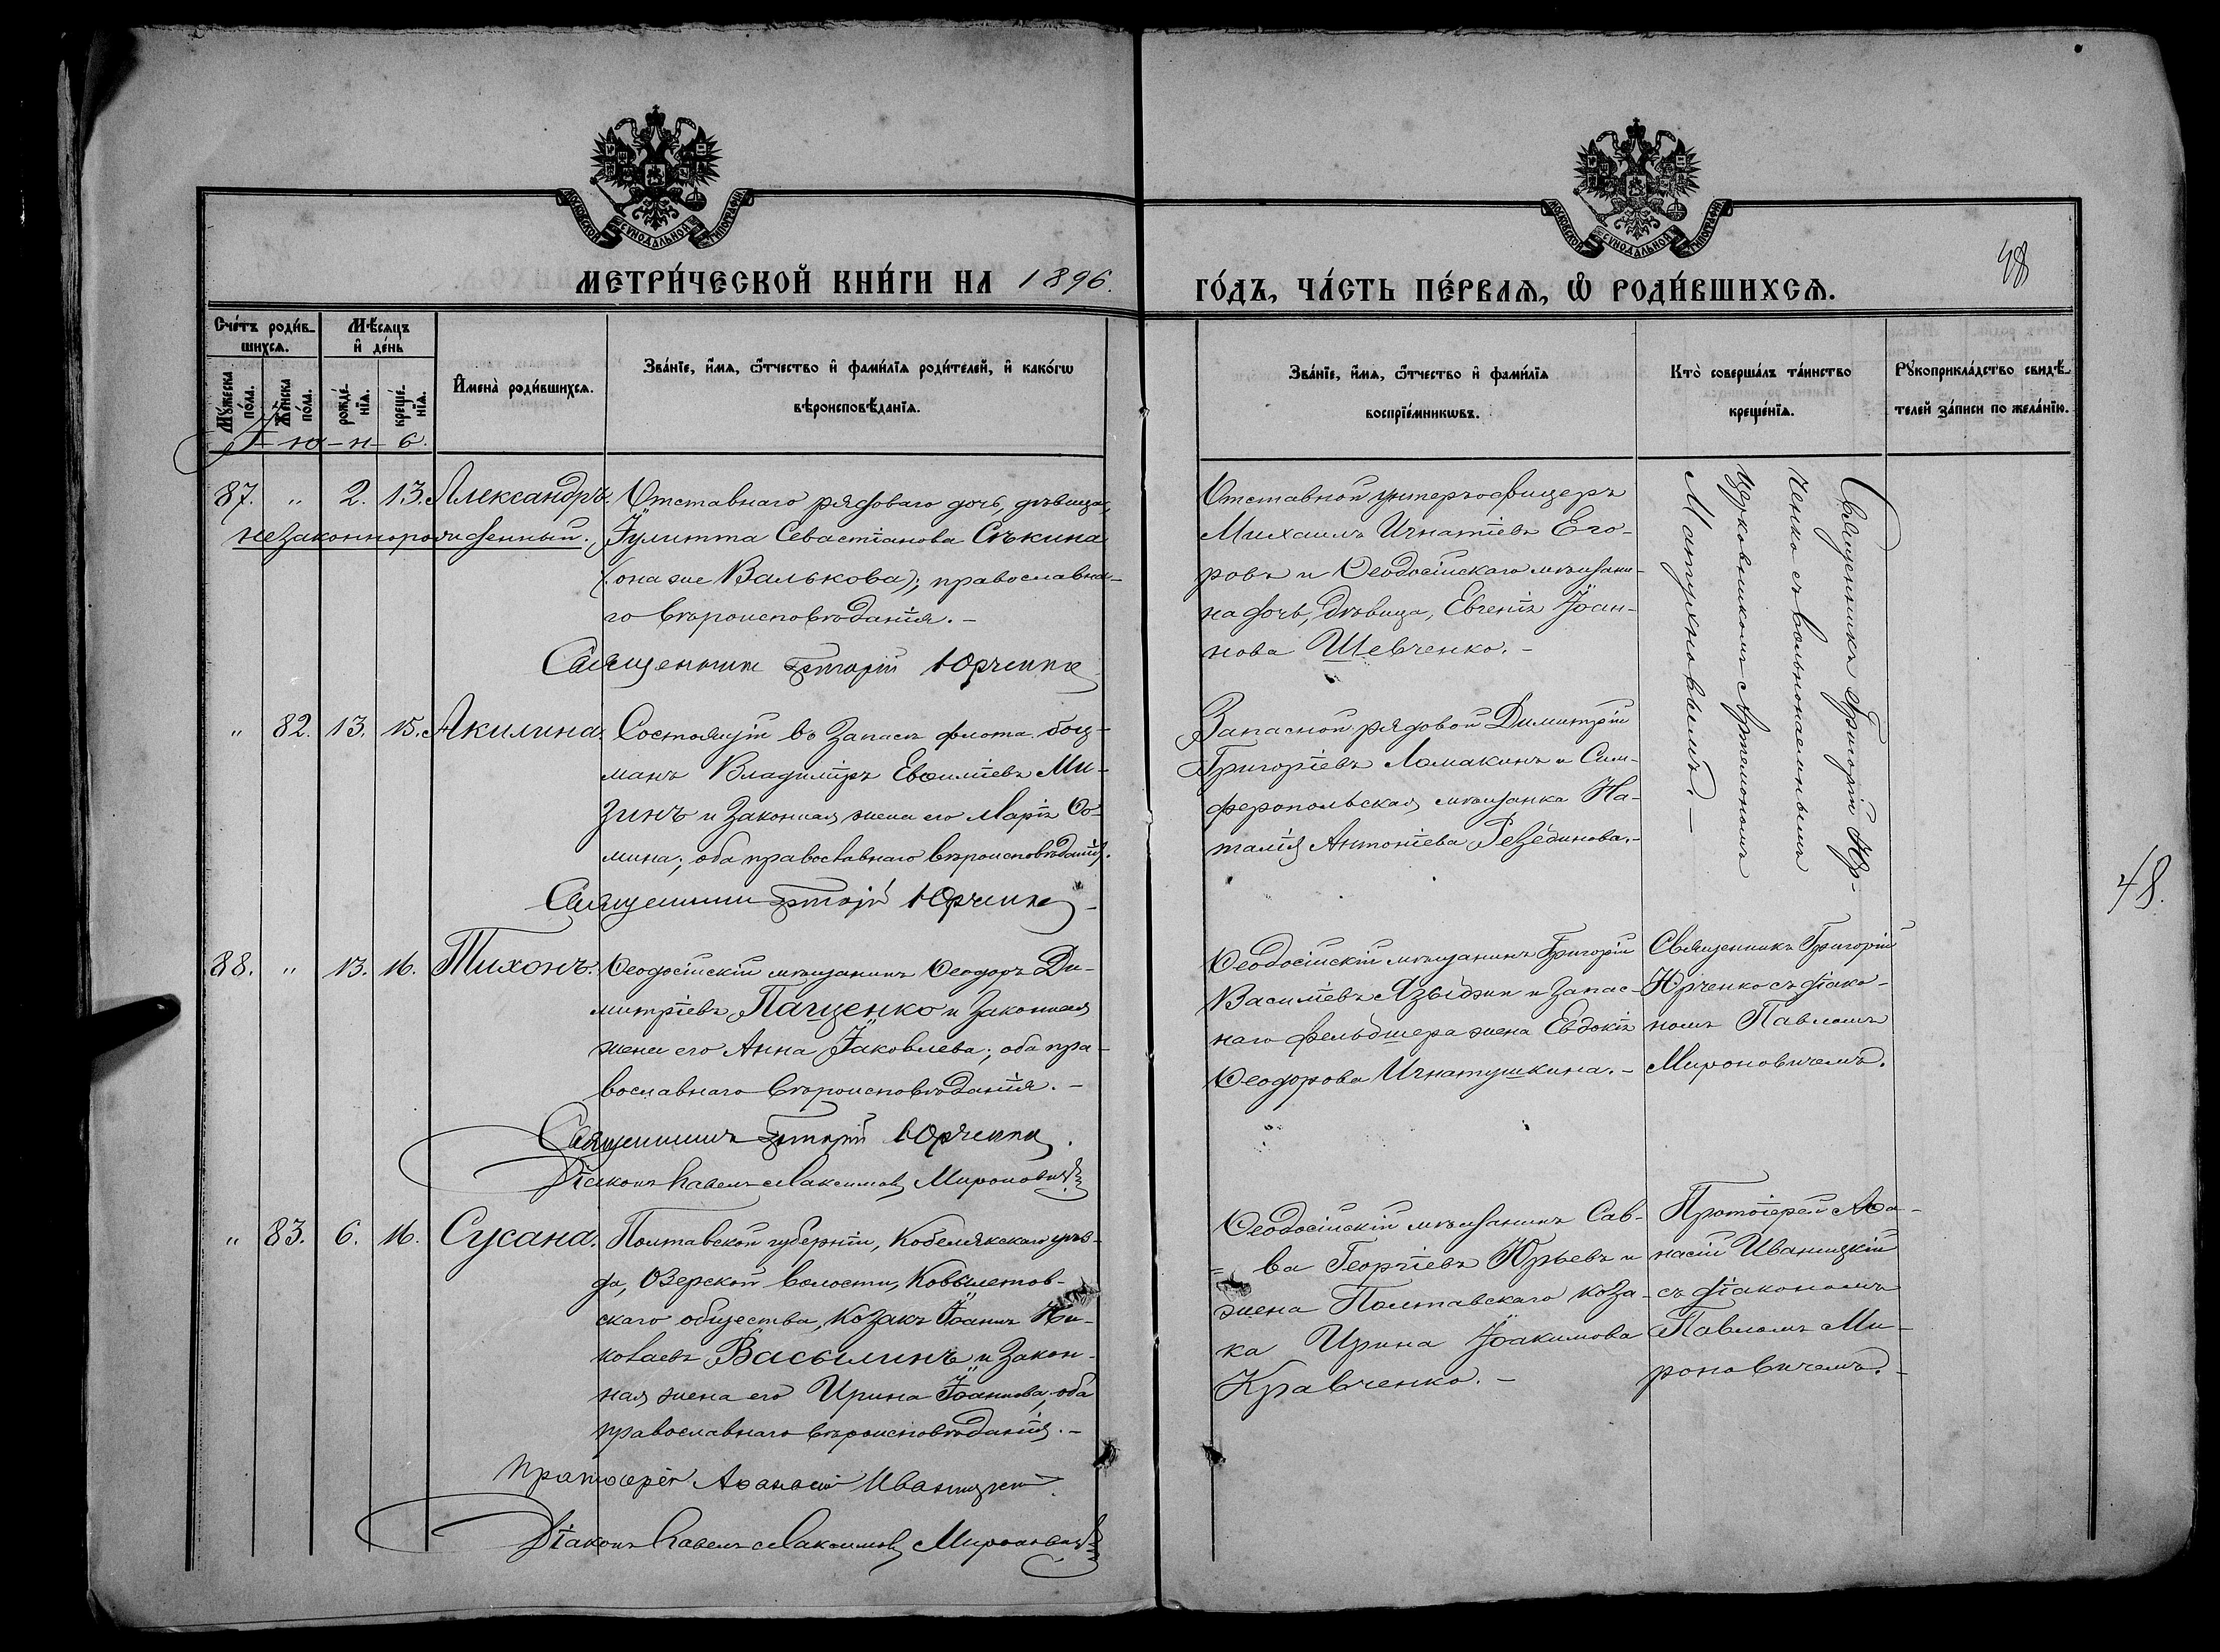 МОСКОВСКОЙ СѴНОДАЛЬНОЙ ТИПОГРАФІИ
МОСКОВСКОЙ СѴНОДАЛЬНОЙ ТИПОГРАФІИ
МЕТРИ́ЧЕСКОЙ КНИ́ГИ НА 1896.
ГО́ДЪ, ЧА́СТЬ ПЕ́РВАЯ, Ѡ РОДИ́ВШИХСЯ.
48
Сче́тъ роди́в-
шихся.
Мѣ́сяцъ
и҆ де́нь
Мꙋ́жеска
по́ла.
Же́нска
по́ла.
рожде́-
нїя.
креще́-
нїя.
И҆мена̀ роди́вшихся.
Зва́нїе, и҆́мя, ѻ҆́тчество и҆ фами́лїя роди́телей, и҆ како́гѡ
вѣроисповѣ́данїя.
Зва́нїе, и҆́мя, ѻ҆́тчество и҆ фами́лїя
воспрїе́мникѡвъ.
Кто̀ соверша́лъ та́инство
креще́нїя.
Рꙋкоприкла́дство свидѣ́-
телей за́писи по жела́нїю.
І - ю - н - ь.
87. " 2. 13. Александръ.
незаконнорожденный.
Отставнаго рядоваго дочь, дѣвица,
Іулитта Севастіанова Сѣкина
(она же Валькова); православна-
го вѣроисповѣданія. -
Священникъ Григорій Юрченко
Отставной унтеръ-офицеръ
Михаилъ Игнатіевъ Его-
ровъ и Ѳеодосійскаго мѣщани-
на дочь, дѣвица, Евгенія Іоан-
нова Шевченко. -
Священникъ Григорій Юр-
ченко съ вольнонаемнымъ
церковникомъ Артемономъ
Матухновымъ. -
" 82. 13. 15. Акилина.
Состоящій въ запасѣ флота боц-
манъ Владиміръ Евѳиміевъ Ми-
зинъ и законная жена его Марія Ѳо-
мина; оба православнаго вѣроисповѣданія.
Священникъ Григорій Юрченко
Запасной рядовой Димитрій
Григоріевъ Ломакинъ и Сим-
феропольская мѣщанка На-
талія Антоніева Резединова. -
88. " 13. 16. Тихонъ.
Ѳеодосійскій мѣщанинъ Ѳеодоръ Ди-
митріевъ Пащенко и законная
жена его Анна Іаковлева; оба пра-
вославнаго вѣроисповѣданія. -
Священникъ Григорій Юрченко
Діаконъ Павелъ Максимовъ Мироновичъ
Ѳеодосійскій мѣщанинъ Григорій
Василіевъ и запас-
наго фельдшера жена Евдокія
Ѳеодорова Игнатушкина. -
Священникъ Григорій
Юрченко съ діако-
номъ Павломъ
Мироновичемъ.
" 83. 6. 16. Сусана.
Полтавской губерніи, Кобелякскаго уѣз-
да, Озерской волости,
скаго общества, козакъ Іоаннъ Ни-
колаевъ Васылинъ и закон-
ная жена его Ирина Іоаннова, оба
православнаго вѣроисповѣданія. -
Протоіерей Аѳанасій Иваницкій
Діаконъ Павелъ Максимовъ Мироновичъ
Ѳеодосійскій мѣщанинъ Сав-
ва Георгіевъ Юрьевъ и
жена Полтавскаго коза-
ка Ирина Іоакимова
Кравченко. -
Протоіерей Аѳа-
насій Иваницкій
съ діакономъ
Павломъ Ми-
роновичемъ. -
48.